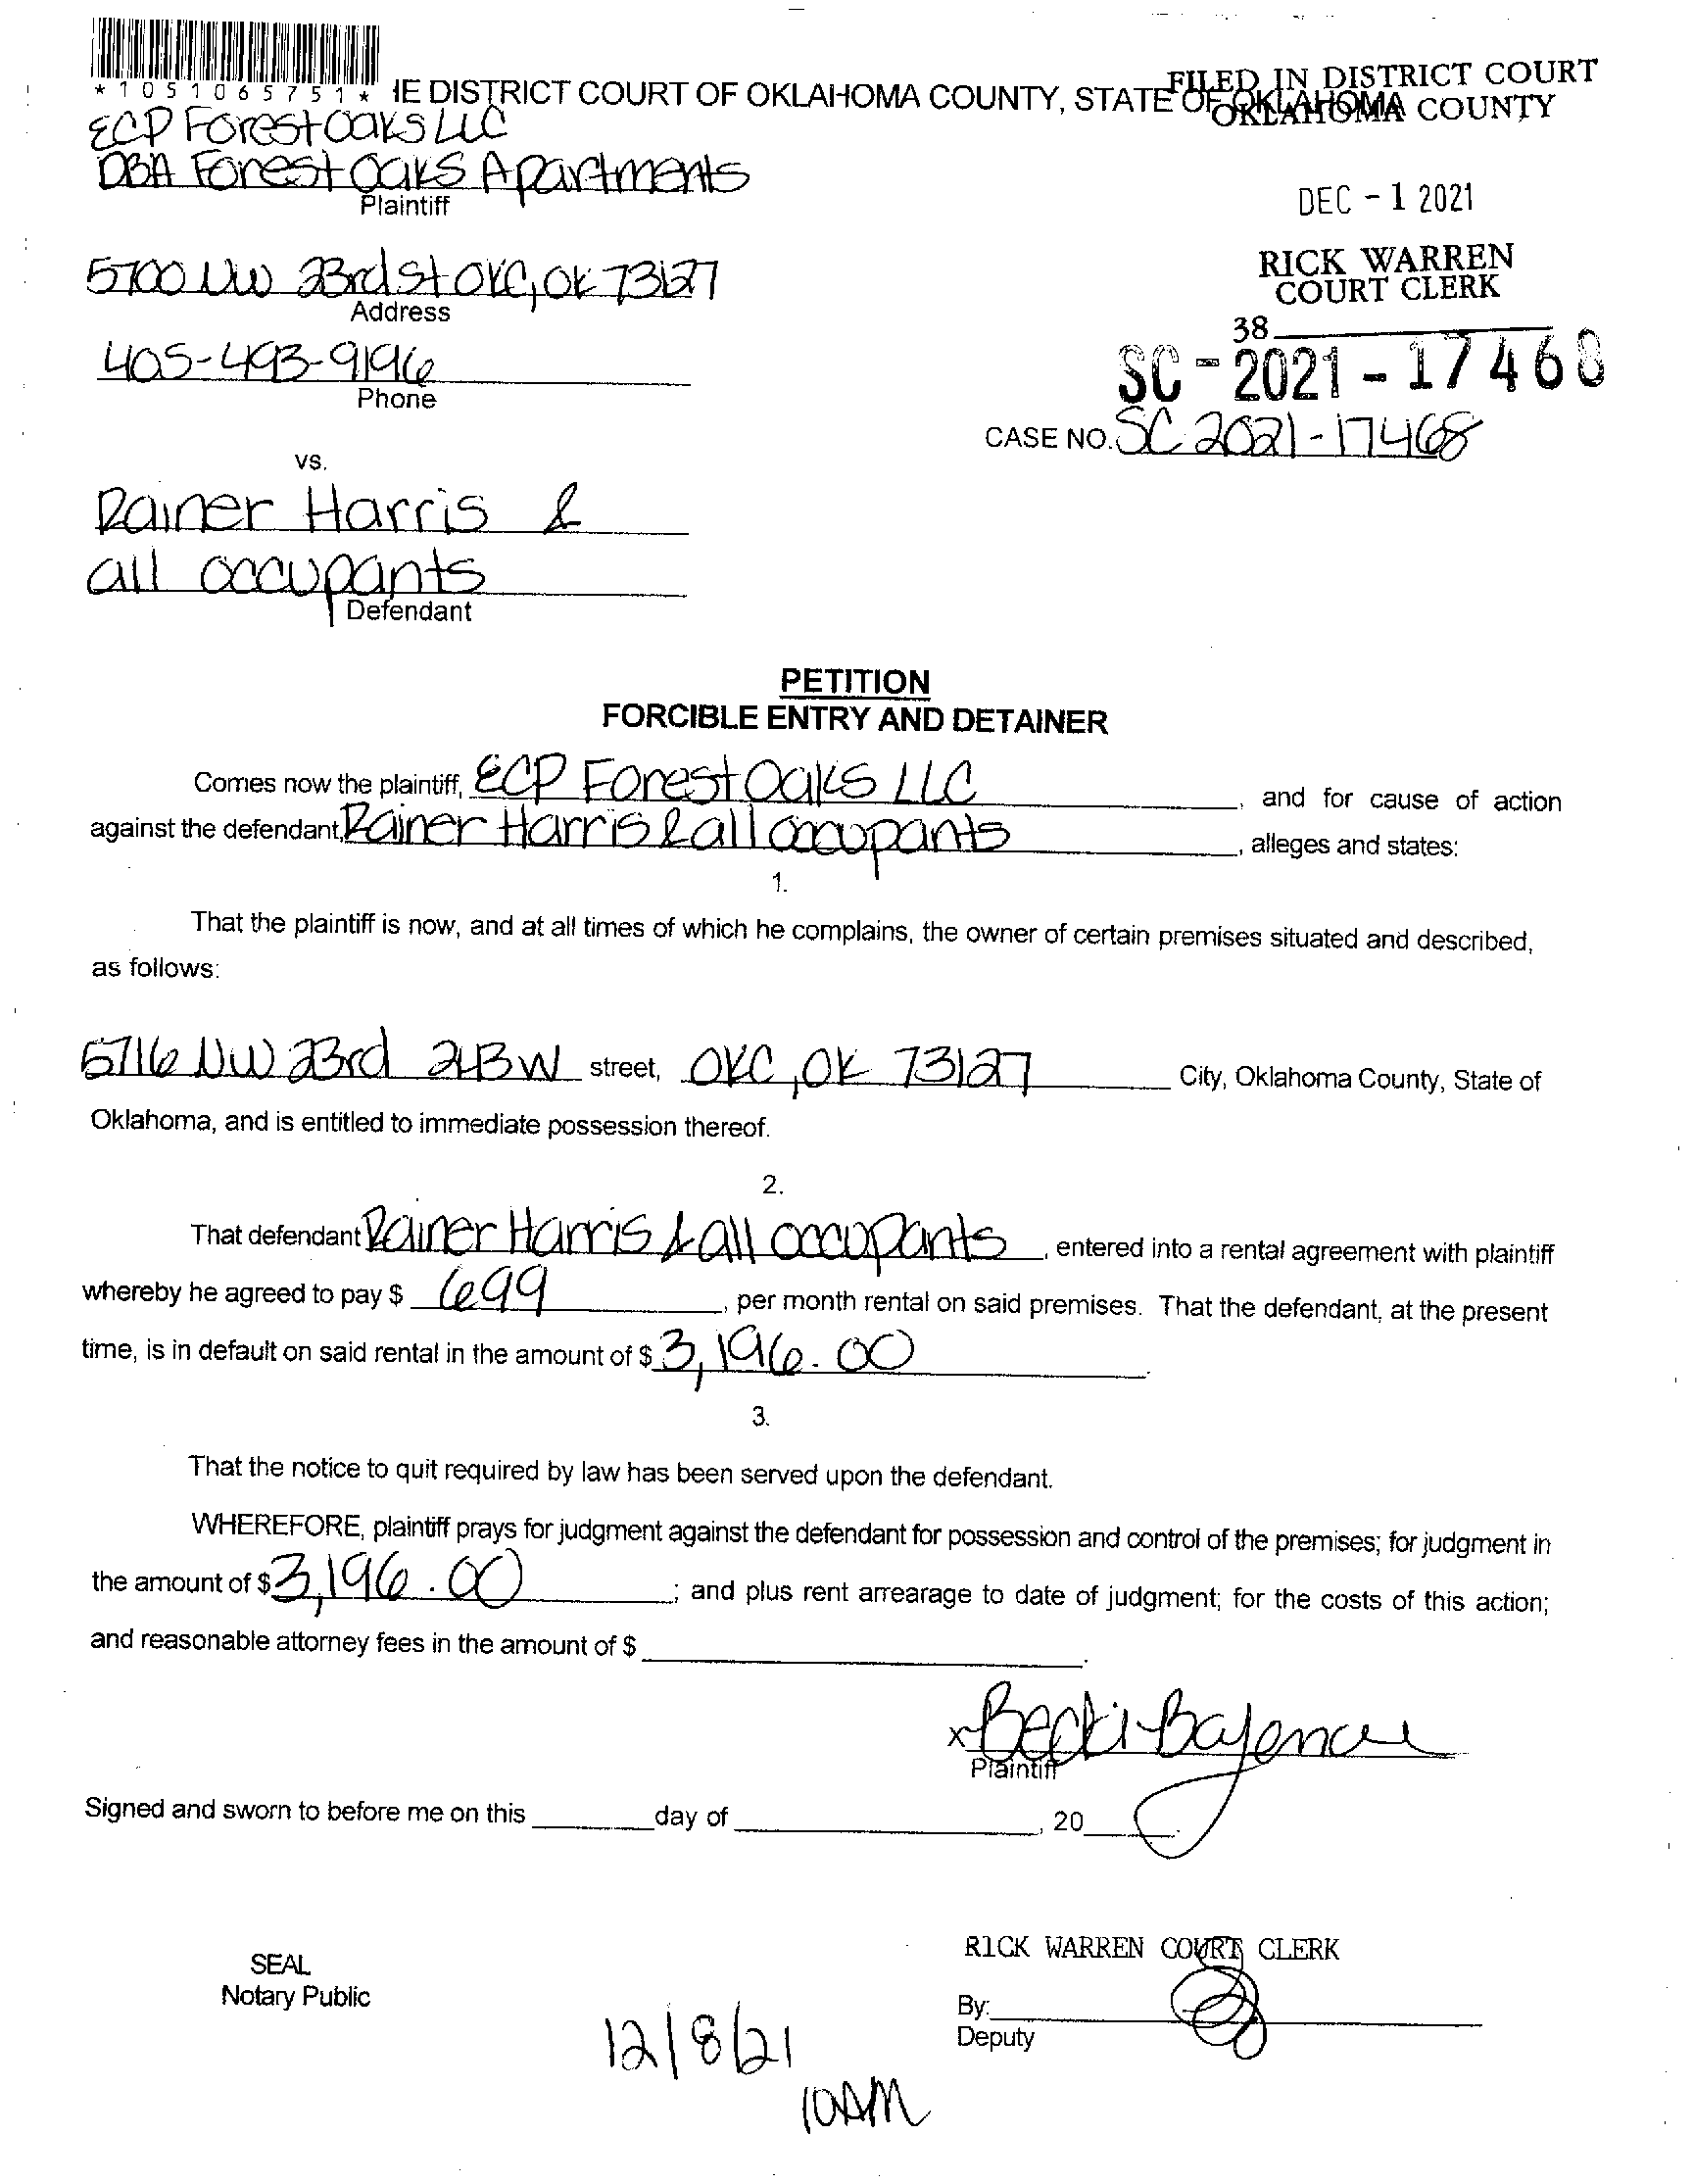 *1051065751* HE DISTRICT COURT OF OKLAHOMA COUNTY, STATE OF OKLAHOMA
FILED IN DISTRICT COURT
OKLAHOMA COUNTY
ECP Forest Oaks LLC
DBA Forest Oaks Apartments
Plaintiff
DEC - 1 2021
5700 NW 23rd St OKC, OK 73127
Address
RICK WARREN
COURT CLERK
38
405-493-9196
Phone
SC - 2021 - 17468
CASE NO. SC 2021-17468
vs.
Rainer Harris &
all occupants
Defendant
PETITION
FORCIBLE ENTRY AND DETAINER
Comes now the plaintiff, ECP Forest Oaks LLC, and for cause of action
against the defendant, Rainer Harris & all occupants, alleges and states:
1.
That the plaintiff is now, and at all times of which he complains, the owner of certain premises situated and described,
as follows:
5716 NW 23rd 213W street, OKC, OK 73127 City, Oklahoma County, State of
Oklahoma, and is entitled to immediate possession thereof.
2.
That defendant Rainer Harris & all occupants, entered into a rental agreement with plaintiff
whereby he agreed to pay $ 699, per month rental on said premises. That the defendant, at the present
time, is in default on said rental in the amount of $ 3,196.00.
3.
That the notice to quit required by law has been served upon the defendant.
WHEREFORE, plaintiff prays for judgment against the defendant for possession and control of the premises; for judgment in
the amount of $ 3,196.00; and plus rent arrearage to date of judgment; for the costs of this action;
and reasonable attorney fees in the amount of $
x Becki
Plaintiff
Signed and sworn to before me on this day of , 20
RICK WARREN COURT CLERK
SEAL
Notary Public
By:
Deputy
12/8/21
10AM